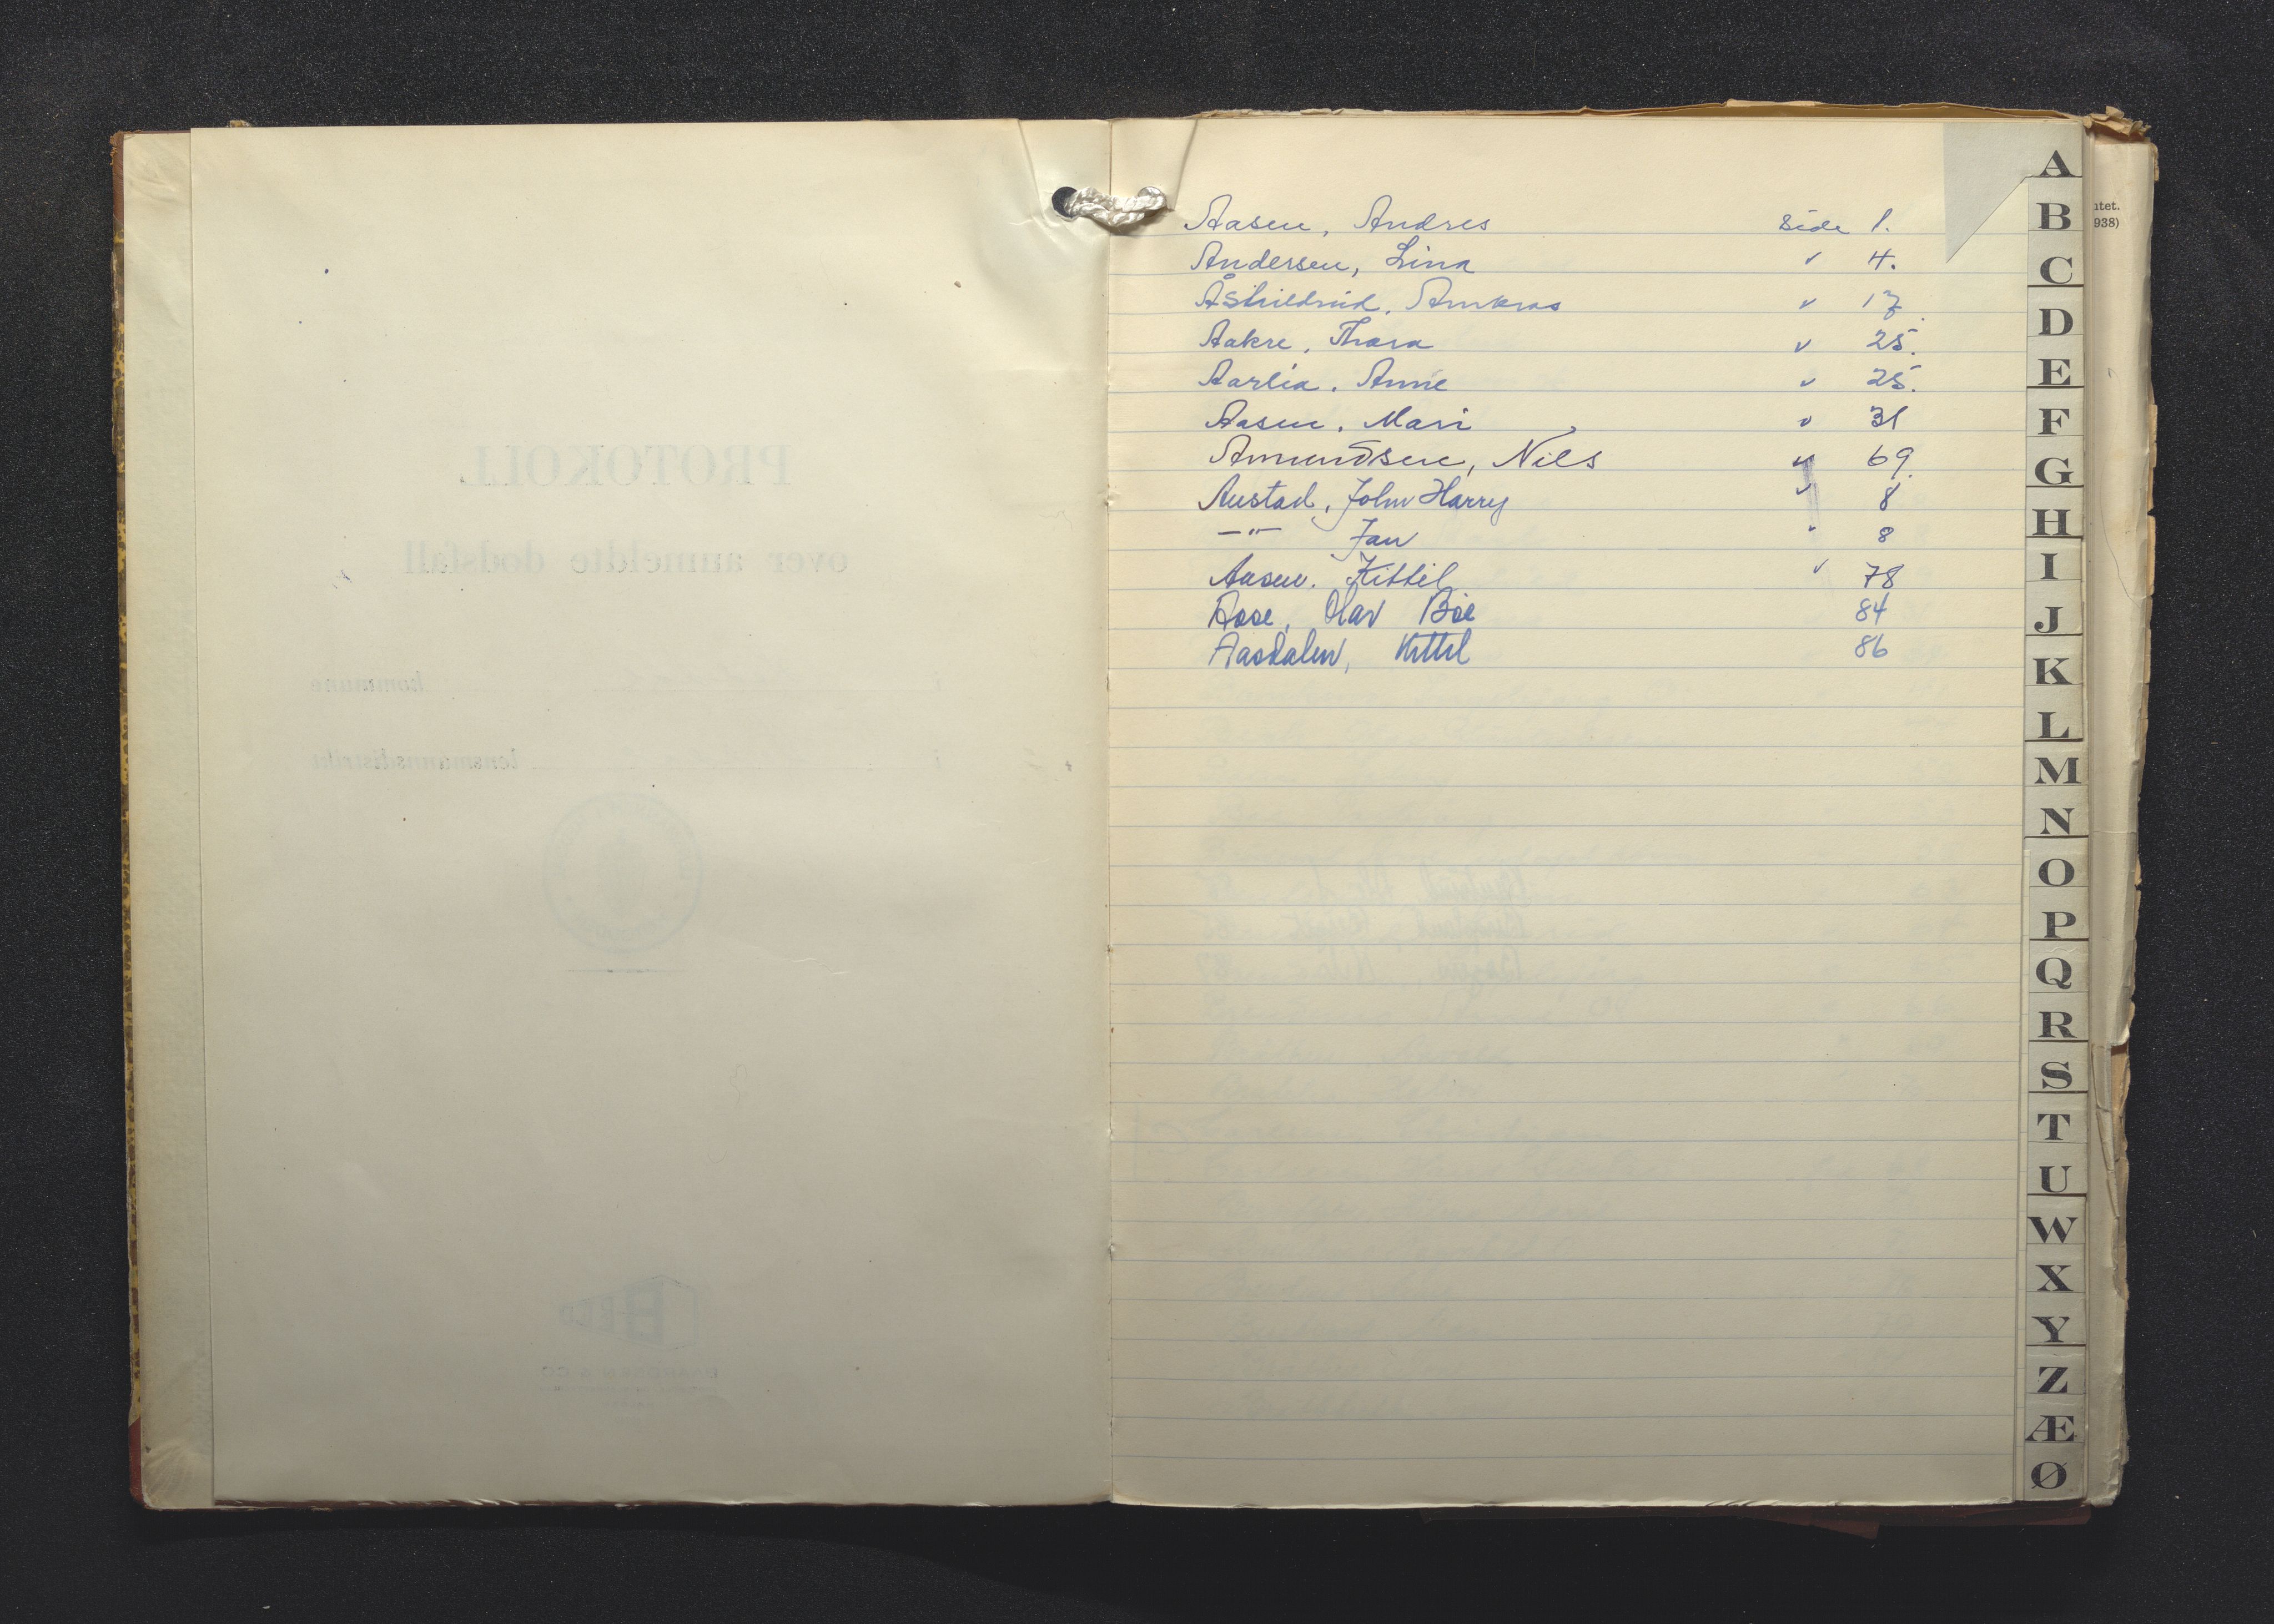 Aasen, Andres side 1.
Andersen, Lina " 4.
Åshildrud, Amkras " 17.
Aakre, Thora " 25.
Aarlia, Anne " 25.
Aasen, Mari " 31
Amundsen, Nils " 69.
Austad, John Harry " 8
—"— Jan " 8
Aasen. Kittil " 78
Aase, Olav Bøe 84
Aasdalen, Kittil 86
A
B
C
D
E
F
G
H
I
J
K
L
M
N
O
P
Q
R
S
T
U
W
X
Y
Z
Æ
Ø
ntet.
938)
PROTOKOLL
over anmeldte dødsfall
i kommune
i lensmannsdistrikt